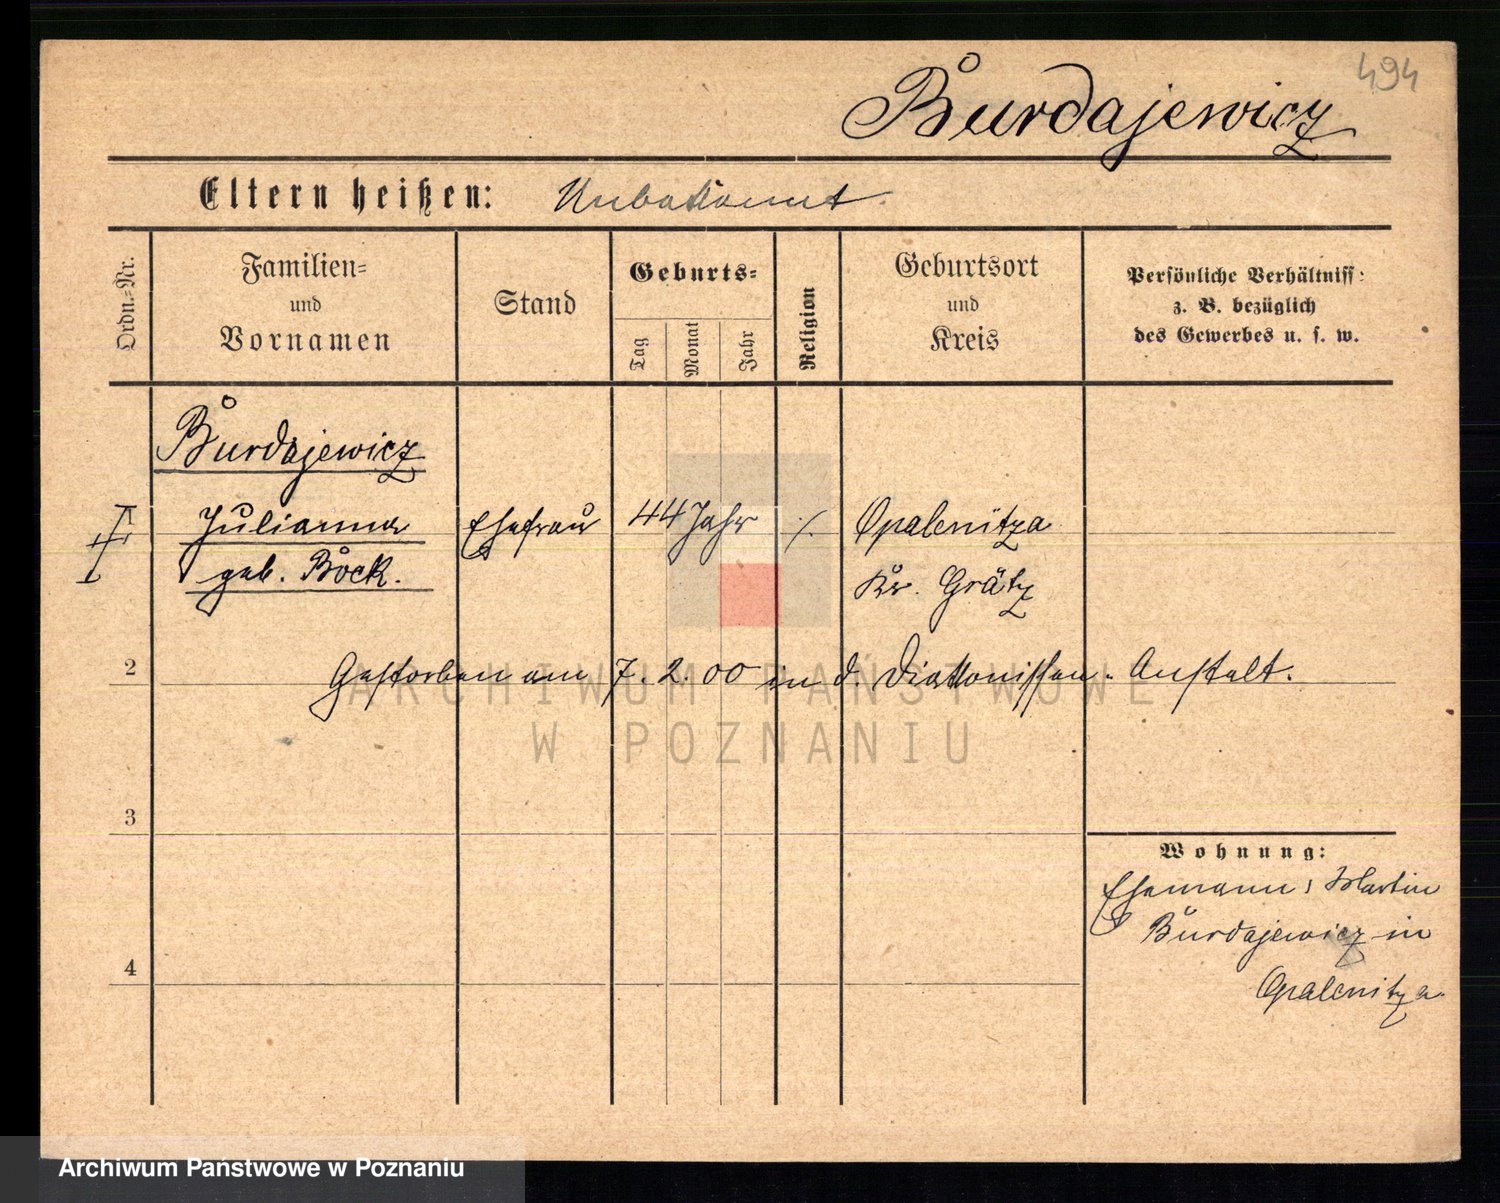 494
Burdajewicz
Eltern heißen: Unbekannt.
Ordn.-Nr.
Familien-
und
Vornamen
Stand
Geburts-
Tag
Monat
Jahr
Religion
Geburtsort
und
Kreis
Persönliche Verhältniss:
z. B. bezüglich
des Gewerbes u. s. w.
Burdajewicz
1 Julianna Ehefrau 44 Jahr ·/. Opalenitza
geb. Bock. Kr. Grätz
2 Gestorben am 7. 2. 00 in d. Diakonissen-Anstalt.
3
Wohnung:
Ehemann: Martin
Burdajewicz in
4 Opalenitza.
ARCHIWUM PAŃSTWOWE
W POZNANIU
Archiwum Państwowe w Poznaniu